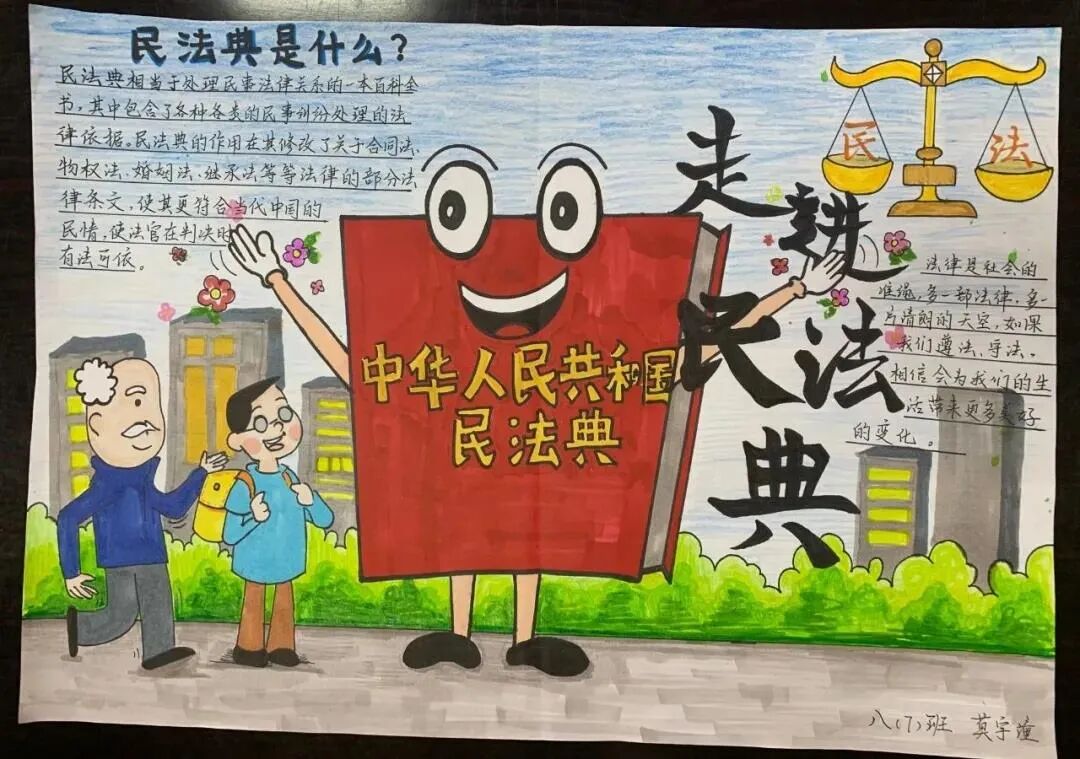 民法典是什么？
民法典相当于处理民事法律关系的一本百科全
书，其中包含了各种各类的民事纠纷处理的法
律依据。民法典的作用在其修改了关于合同法、
物权法、婚姻法、继承法等等法律的部分法
律条文，使其更符合当代中国的
民情，使法官在判决时
有法可依。
民 法
走进
民法
典
中华人民共和国
民法典
法律是社会的
准绳，多一部法律，多一
片清朗的天空，如果
我们遵法、守法，
相信会为我们的生
活带来更多美好
的变化。
八(7)班 莫宇潼